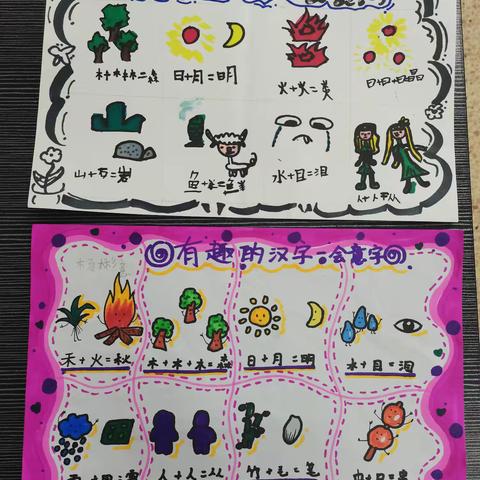 木+木+木=森
日+月=明
火+火=炎
日+日+日=晶
山+石=岩
鱼+羊=鲜
水+目=泪
人+人=从
有趣的汉字·会意字
禾+火=秋
木+木+木=森
日+月=明
水+目=泪
人+人=从
竹+毛=笔